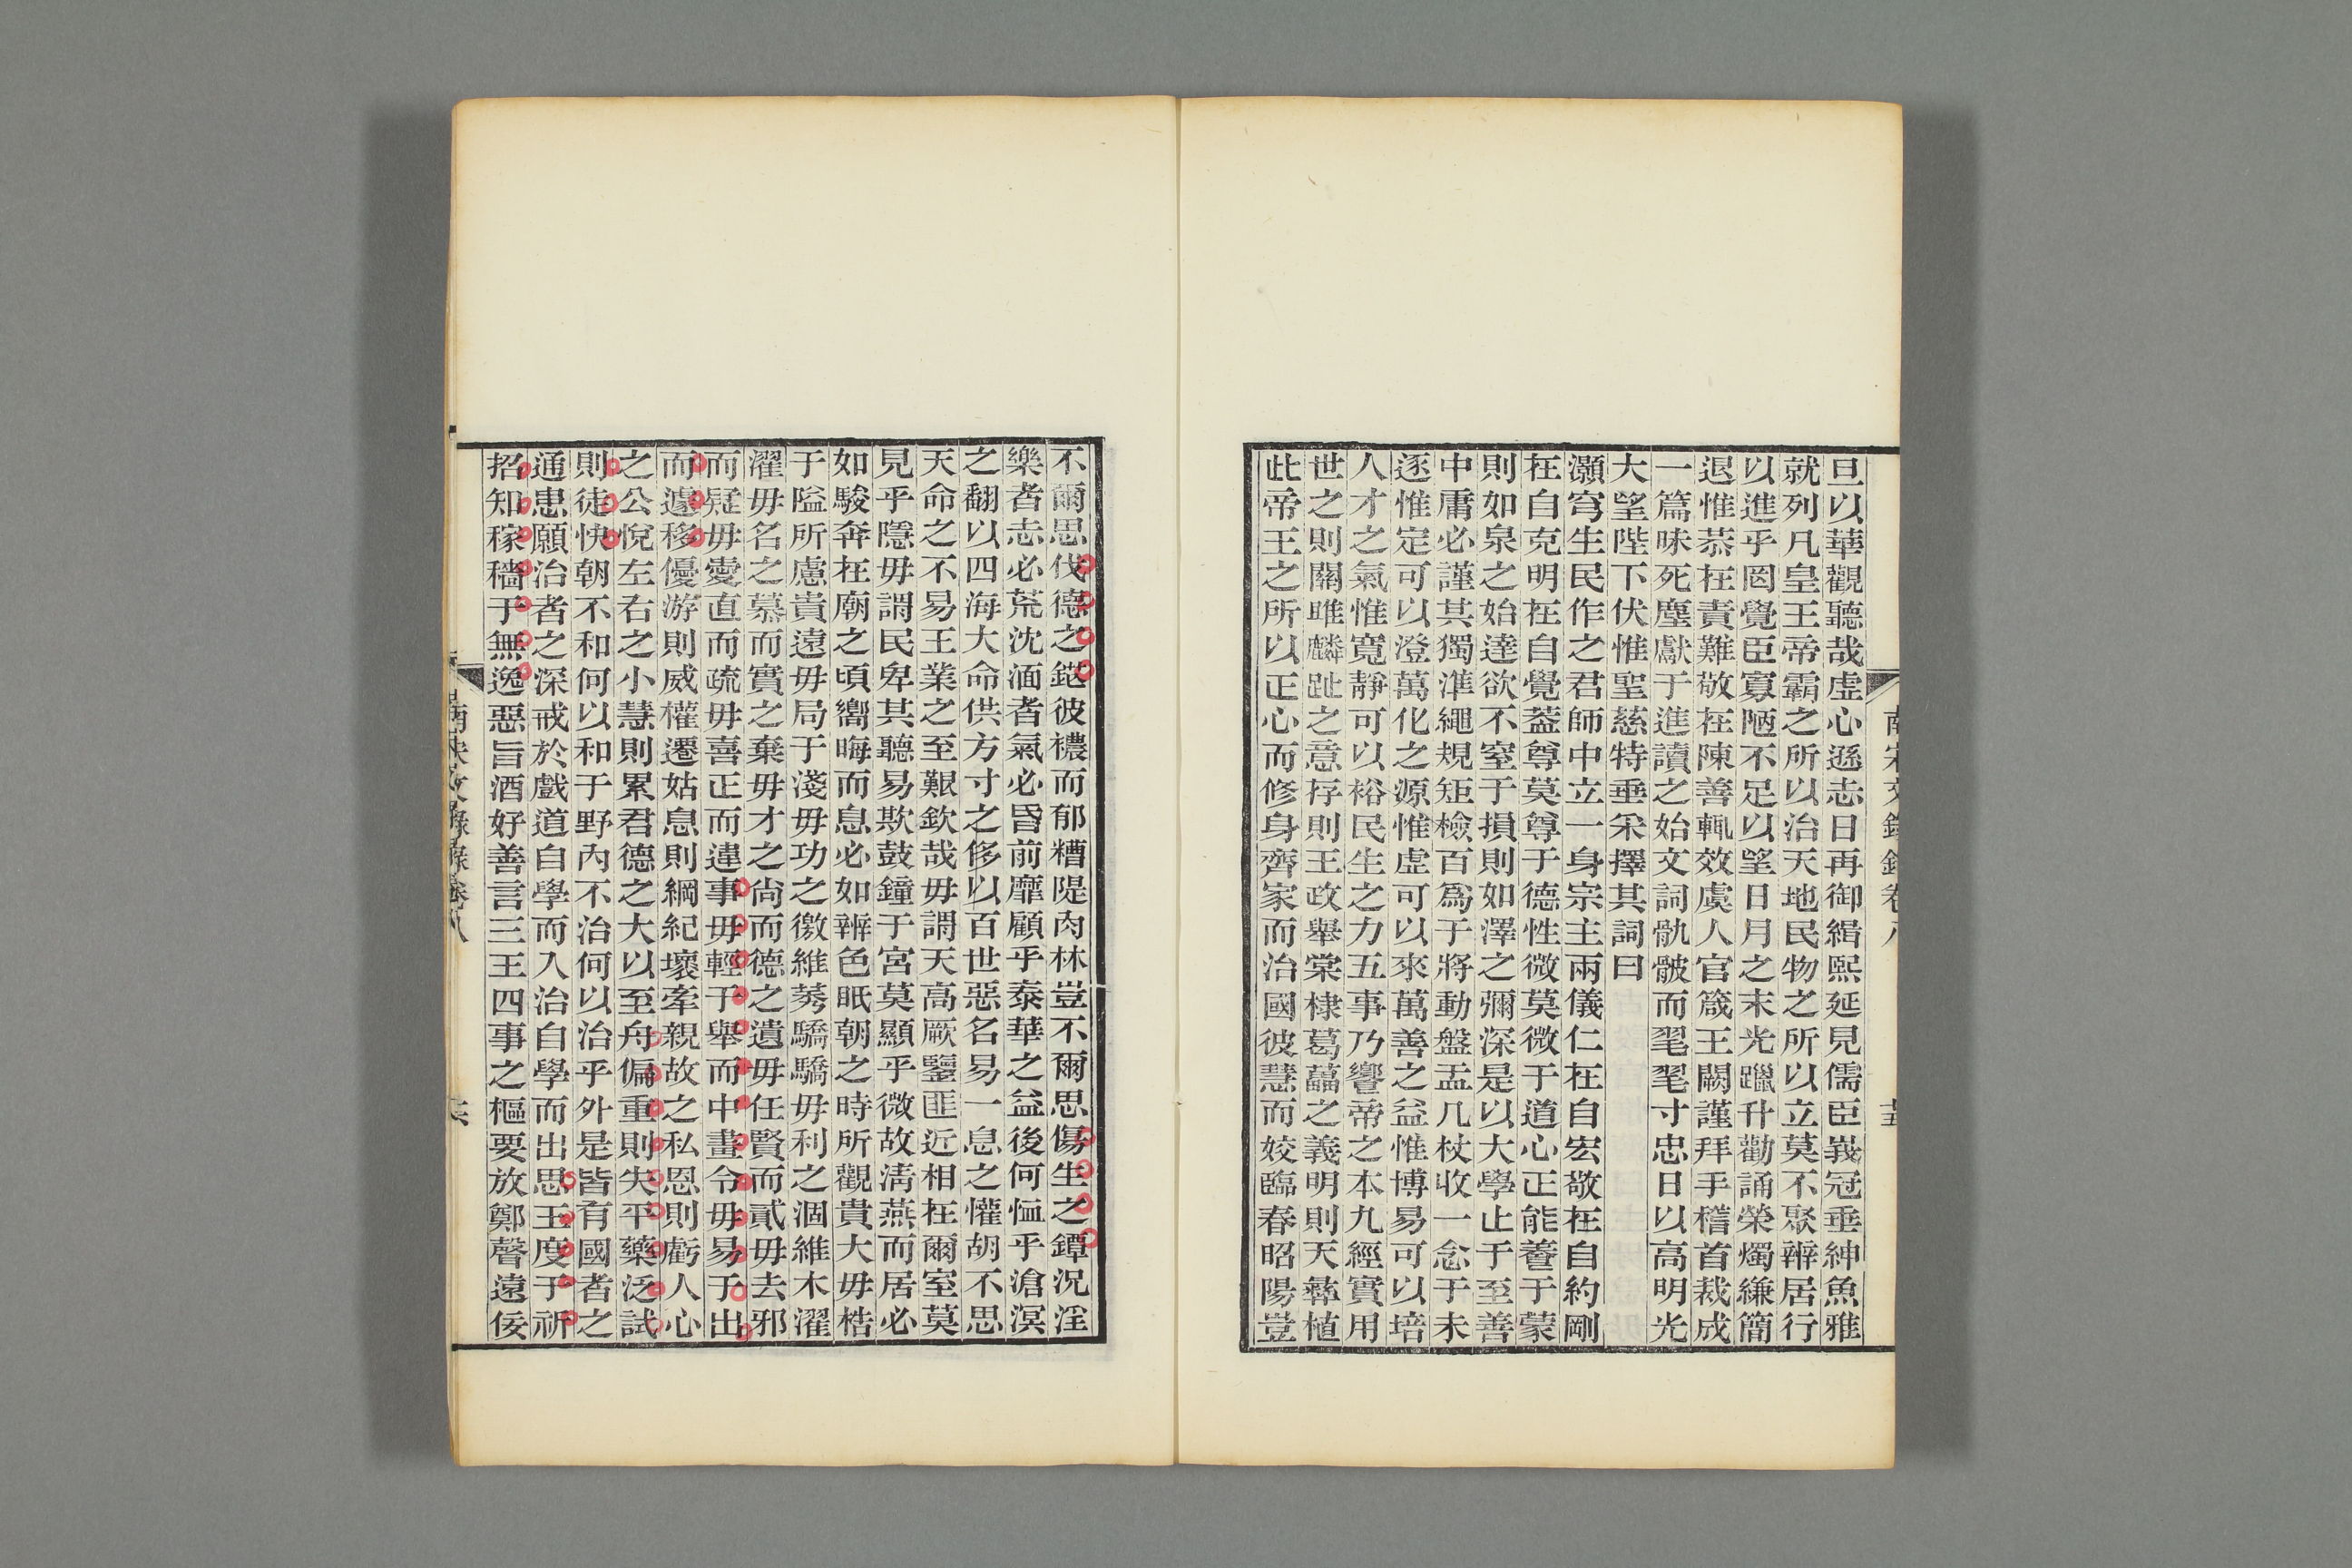 旦以華觀聽哉虛心遜志日再御緝熙延見儒臣峩冠垂紳魚雅
就列凡皇王帝霸之所以治天地民物之所以立莫不聚辨居行
以進乎罔覺臣寡陋不足以望日月之末光躐升勸誦榮燭縑簡
退惟恭在責難敬在陳善輒效虞人官箴王闕謹拜手稽首裁成
一篇昧死塵獻于進讀之始文詞骫骳而毣毣寸忠日以高明光
大望陛下伏惟聖慈特垂采擇其詞曰
灝穹生民作之君師中立一身宗主兩儀仁在自宏敬在自約剛
在自克明在自覺葢尊莫尊于德性微莫微于道心正能養于蒙
則如泉之始達欲不窒于損則如澤之彌深是以大學止于至善
中庸必謹其獨準繩規矩檢百爲于將動盤盂几杖收一念于未
逐惟定可以澄萬化之源惟虛可以來萬善之益惟博易可以培
人才之氣惟寬靜可以裕民生之力五事乃響帝之本九經實用
世之則關雎麟趾之意存則王政舉棠棣葛藟之義明則天彝植
此帝王之所以正心而修身齊家而治國彼慧而姣臨春昭陽豈
南宋文錄錄卷八
不爾思伐德之鎝彼禯而郁糟隄肉林豈不爾思傷生之鐔況淫
樂者志必荒沈湎者氣必昏前靡顧乎泰華之益後何恤乎滄溟
之翻以四海大命供方寸之侈以百世惡名易一息之懽胡不思
天命之不易王業之至艱欽哉毋謂天高厥鑒匪近相在爾室莫
見乎隱毋謂民卑其聽易欺鼓鐘于宮莫顯乎微故淸燕而居必
如駿奔在廟之頃嚮晦而息必如辨色眂朝之時所觀貴大毋梏
于隘所慮貴遠毋局于淺毋功之徼維莠驕驕毋利之涸維木濯
濯毋名之慕而實之棄毋才之尙而德之遺毋任賢而貳毋去邪
而疑毋愛直而疏毋喜正而違事毋輕于舉而中畫令毋易于出
而遽移優游則威權遷姑息則綱紀壞牽親故之私恩則虧人心
之公悅左右之小慧則累君德之大以至舟偏重則失平藥泛試
則徒快朝不和何以和于野內不治何以治乎外是皆有國者之
通患願治者之深戒於戲道自學而入治自學而出思王度于祈
招知稼穡于無逸惡旨酒好善言三王四事之樞要放鄭聲遠佞
南宋文錄錄卷八